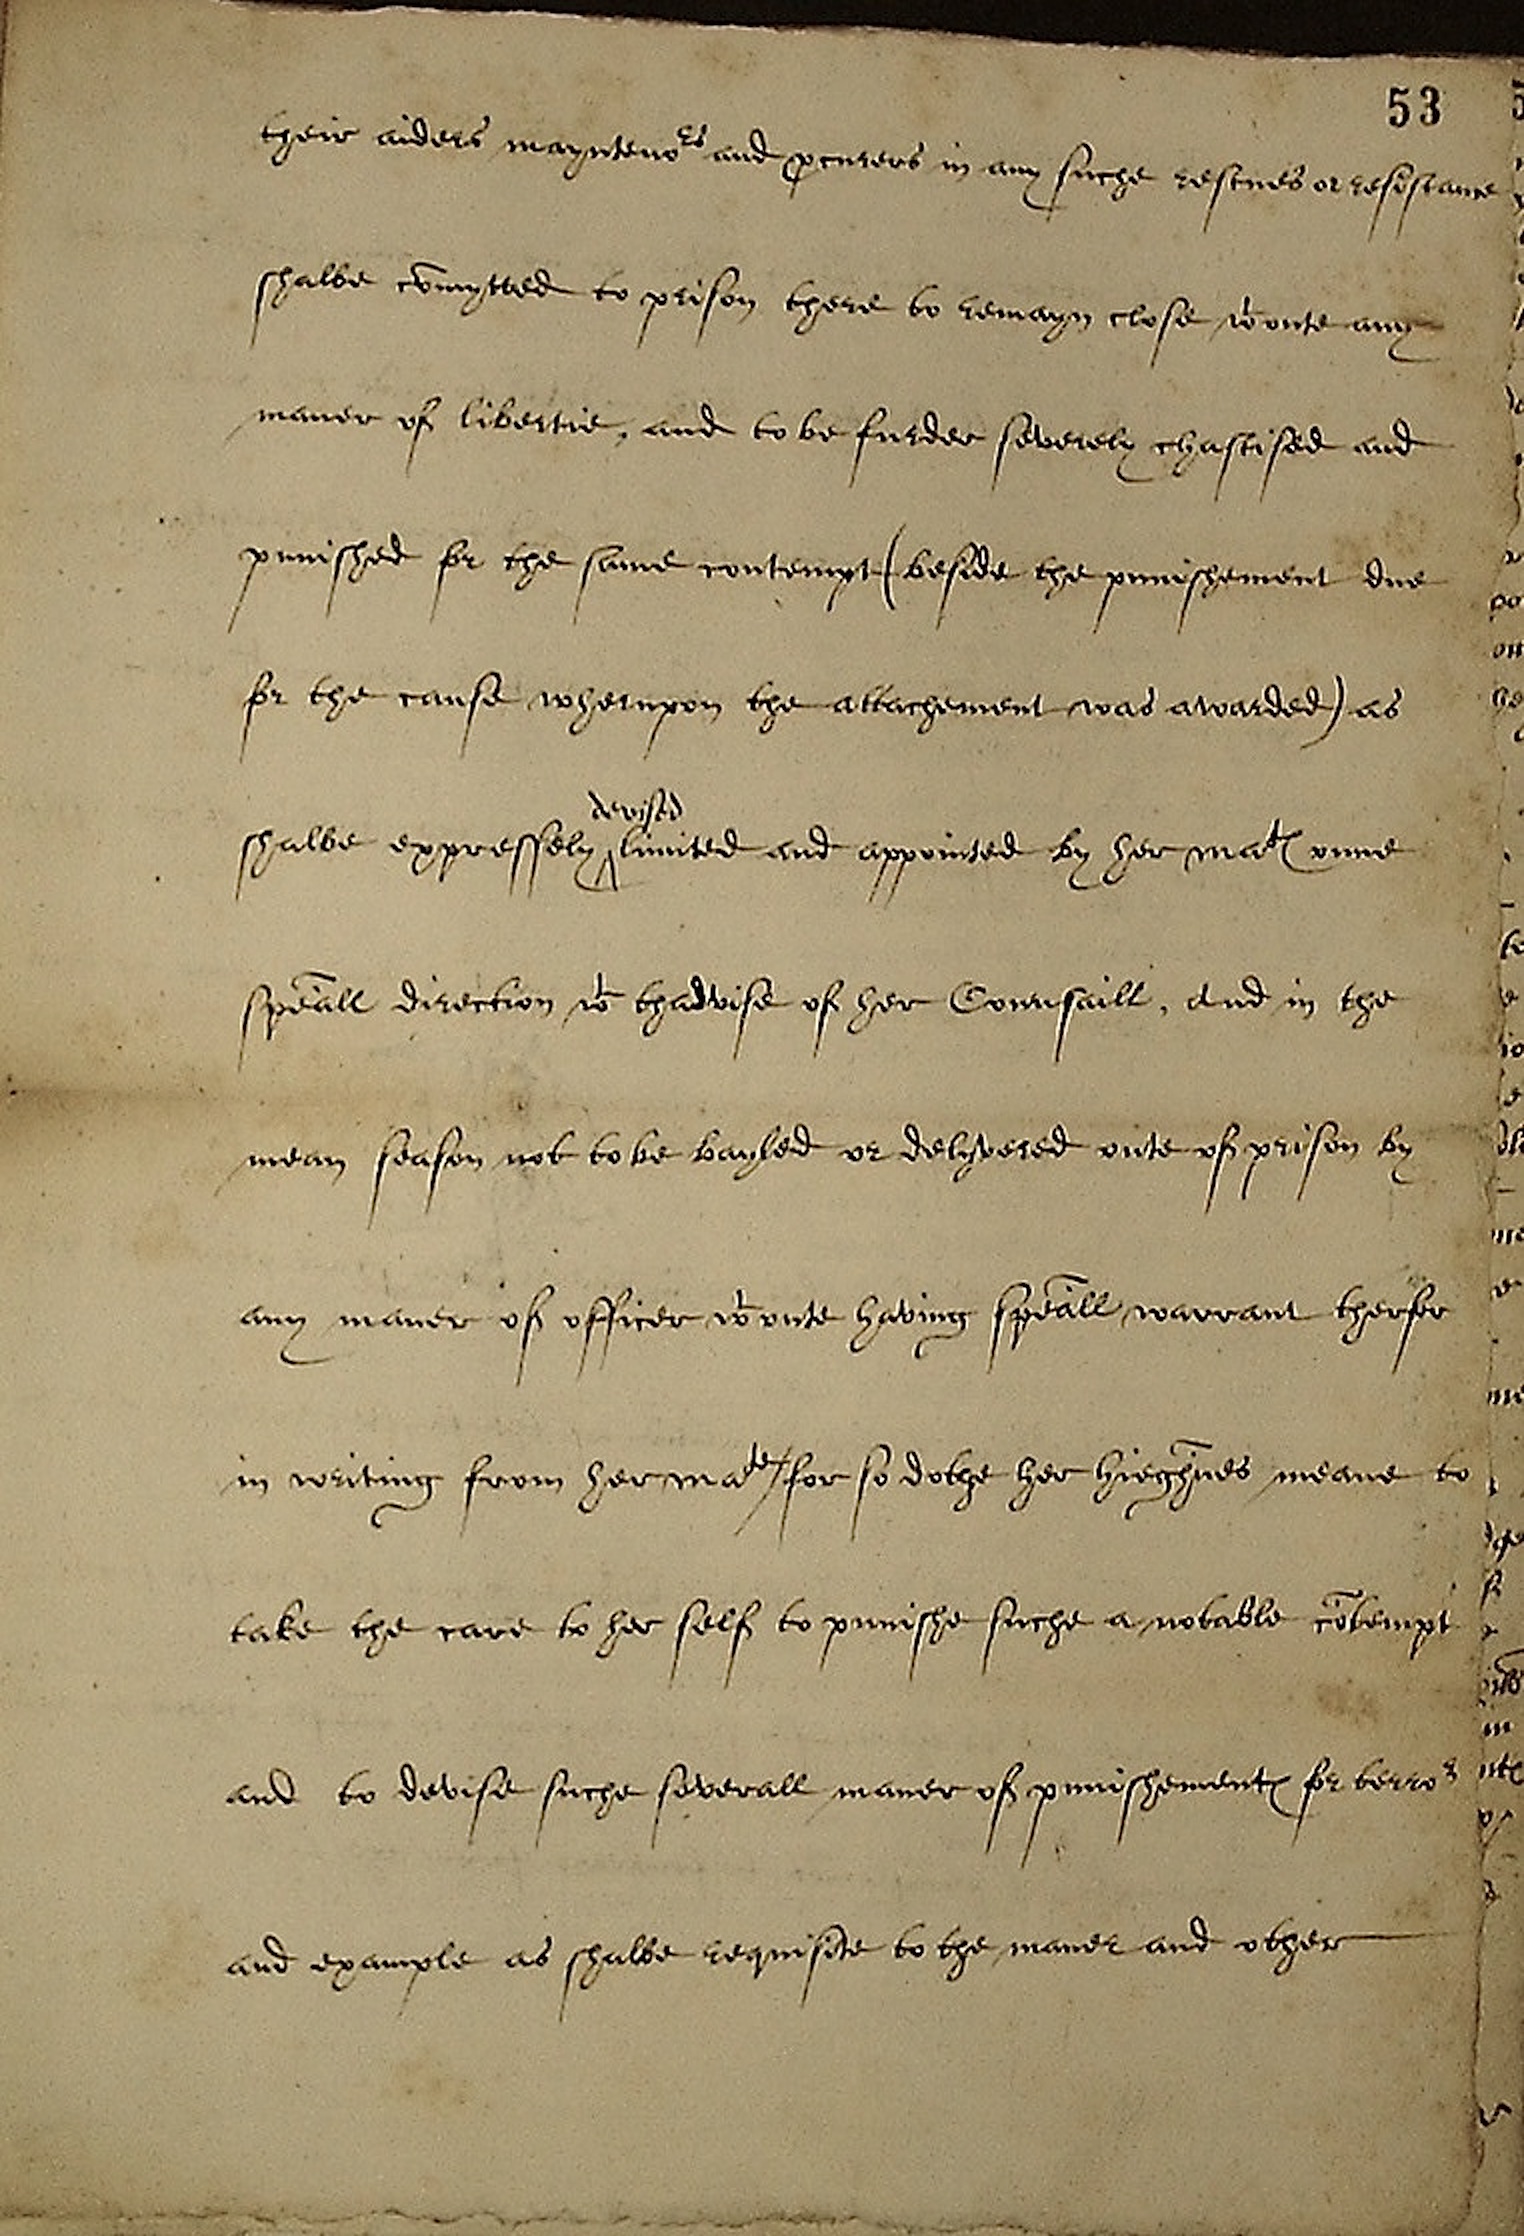 53
their aiders mayntenors and pcurers in any suche rescues or resistance
shalbe cōmytted to prison there to remayn close wtoute any
maner of libertie, and to be furder severely chastised and
punished for the same contempt (beside the punishement due
for the cause wherupon the attachement was awarded) as
devised
shalbe expressely limited and appointed by her matꝭ owne
spēall direction wt thadvise of her Counsaill, And in the
mean season not to be bayled or delyvered oute of prison by
any maner of officer wtoute having spēall warrant therfor
in writing from her matie / for so dothe her hieghnēs meane to
take the care to her self to punishe suche a notable cōtempt
and to devise suche severall maner of punishementꝭ for terror
and example as shalbe requisite to the maner and other